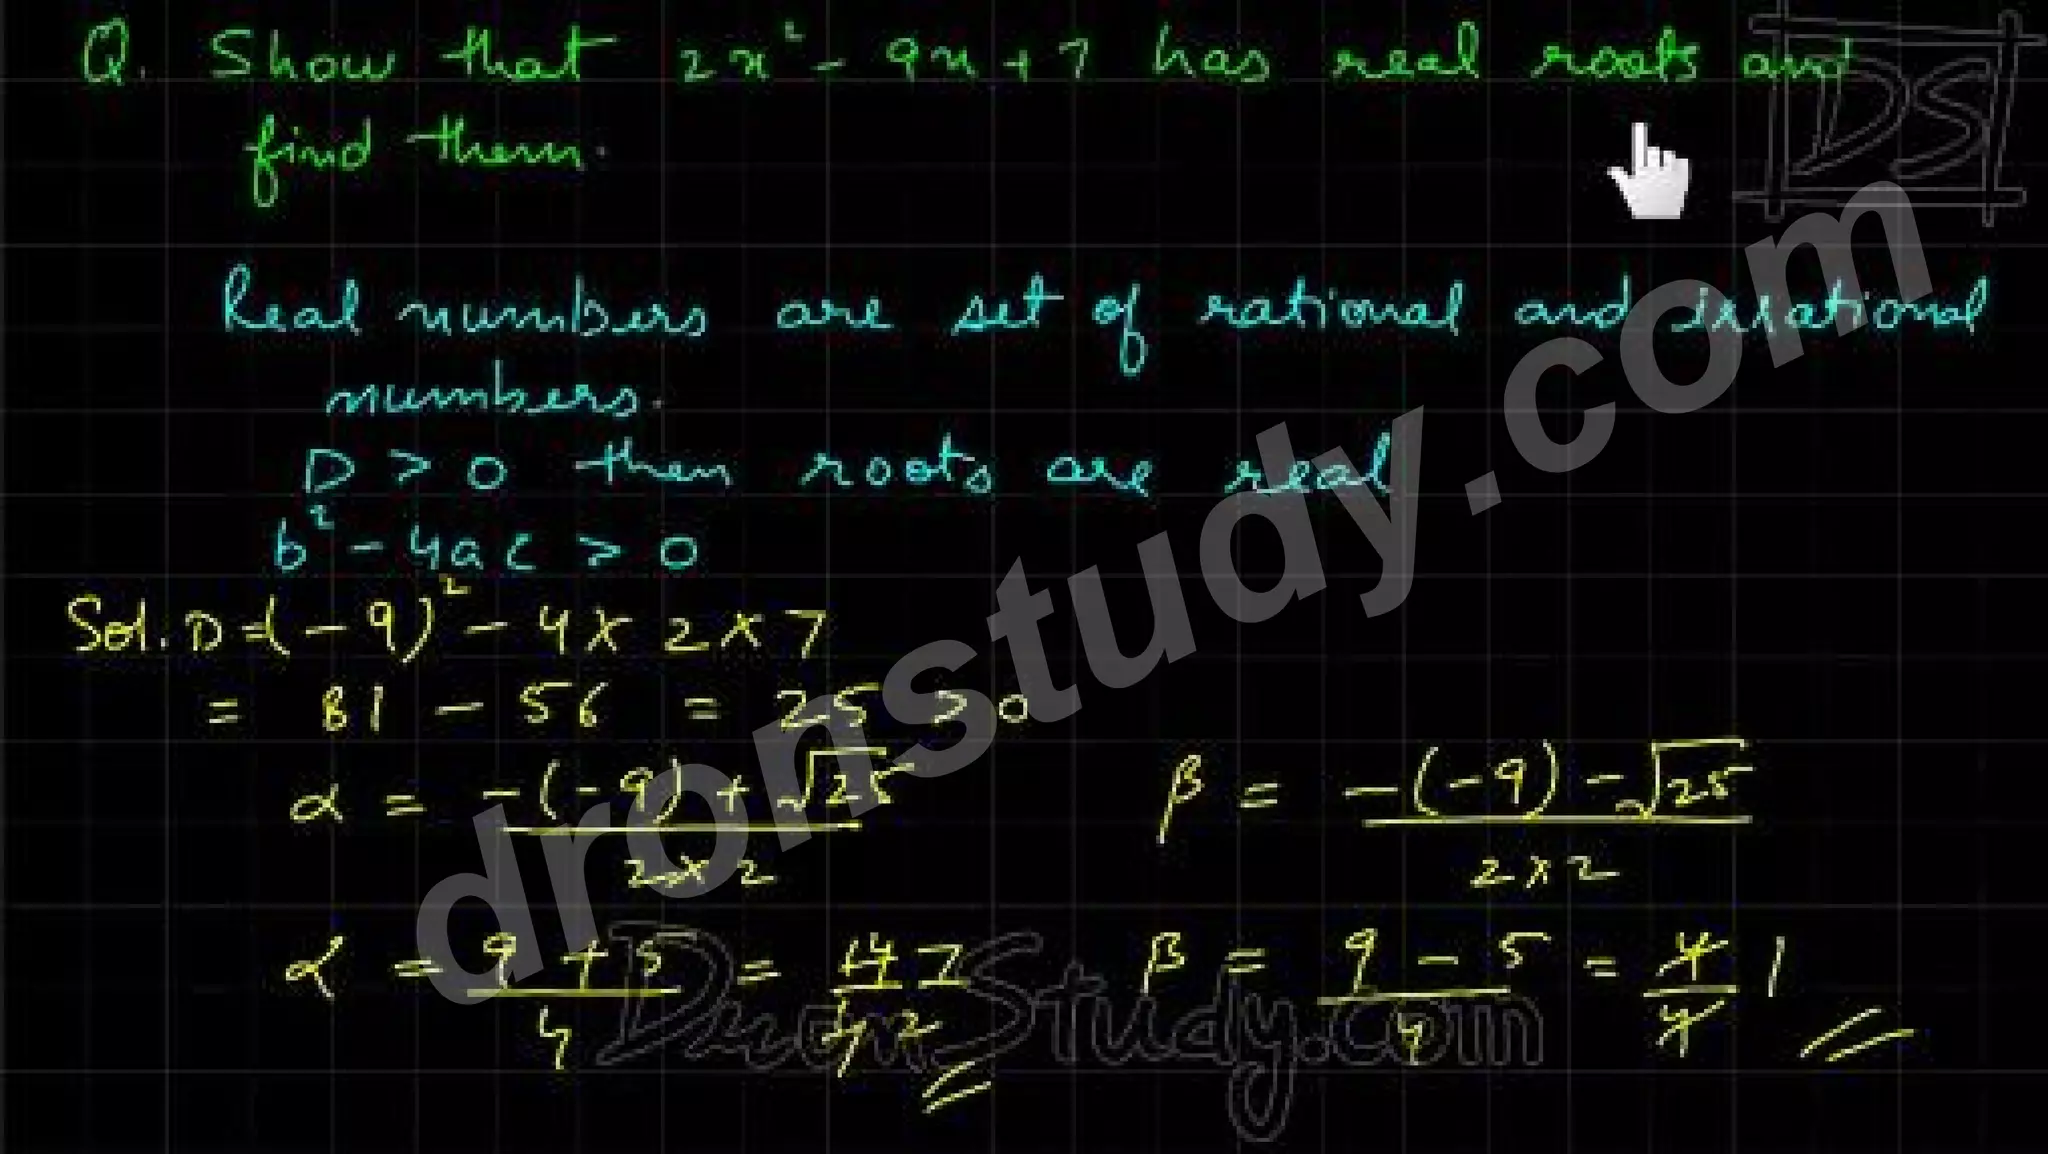 Q. Show that 2x² - 9x + 7 has real roots and
DS
find them.
Real numbers are set of rational and irrational
numbers.
D > 0 then roots are real
b² - 4ac > 0
Sol. D = (-9)² - 4 × 2 × 7
= 81 - 56 = 25 > 0
α = -(-9) + √25 / 2×2    β = -(-9) - √25 / 2×2
α = 9 + 5 / 4 = 14 / 4 7 / 2    β = 9 - 5 / 4 = 4 / 4 1
dronstudy.com
DronStudy.com